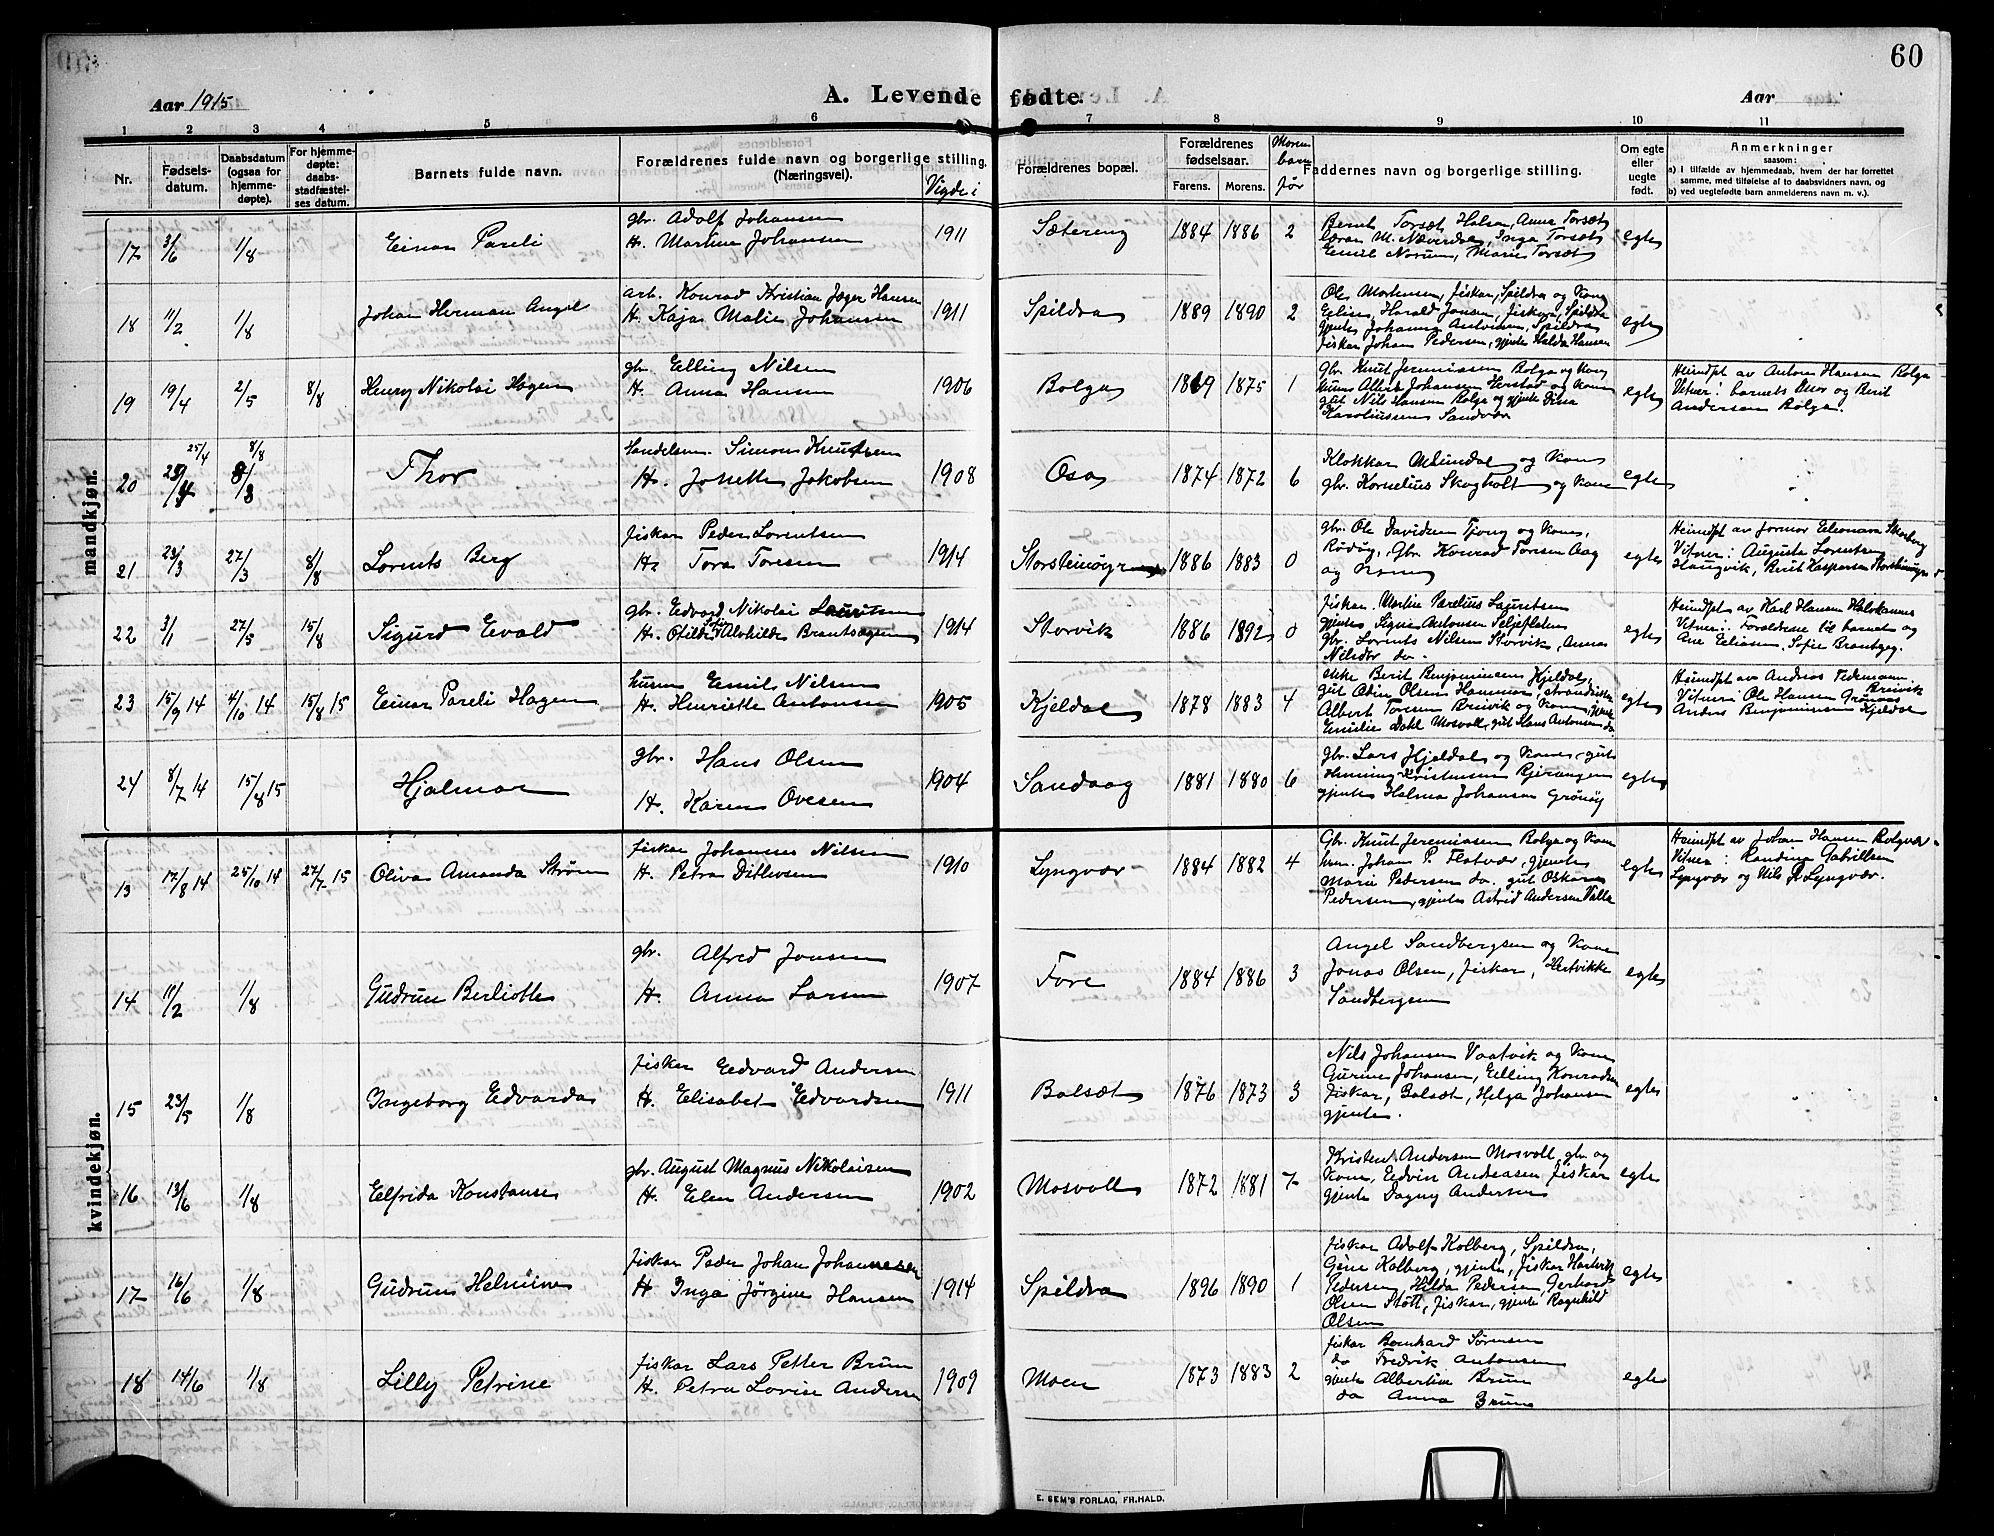 60
Aar 1915
A. Levende fødte.
Aar
1 2 3 4 5 6 7 8 9 10 11
Nr.
Fødsels-
datum.
Daabsdatum
(ogsaa for
hjemme-
døpte).
For hjemme-
døpte:
daabs-
stadfæstel-
ses datum.
Barnets fulde navn.
Forældrenes fulde navn og borgerlige stilling.
(Næringsvei).
Vigde i
Forældrenes bopæl.
Forældrenes
fødselsaar.
Farens. Morens.
Faddernes navn og borgerlige stilling.
Om egte
eller
uegte
født.
Anmerkninger
saasom:
a) I tilfælde av hjemmedaab, hvem der har forrettet
samme, med tilføielse af to daabsvidners navn, og
b) ved uegtefødte barn anmelderens navn m. v.)
mandkjøn.
17 3/6 1/8 Einar Pareli
gbr. Adolf Johansen
H. Martine Johansen
1911 Sætereng 1884 1886 2
Bernt Torsæt Halsa, Anna Torsæt
Lærar M. Næverdal, Inga Torsæt
Emil Norum, Marie Torsæt
egte
18 11/2 1/8 Johan Herman Angel
arb. Konrad Kristian Jæger Hansen
H. Kaja Malie Johansen
1911 Spildra 1889 1890 2
Ole Mortensen, fiskar, Spildra og kona
Elise, Harald Jensen, fiskar, Spildra
gjente Johanna Antonsen, Spildra
fiskar Johan Pedersen, gjente Halda Hansen
egte
19 19/4 2/5 8/8 Henry Nikolai Hagen
gbr. Elling Nilsen
H. Anna Hansen
1906 Bolga 1869 1875 1
Gbr. Knut Jeremiassen Bolga og kona
husm. Albert Johansen Herstad og kona
gut Nils Hansen Bolga og gjente Dina
Karoliussen Sandvær
egte
Heimdpt av Anton Hansen Bolga
Vitner: barnets mor og Berit
Andersen Bolga.
20 25/4 8/8 Thor
Handelsm. Simon Knutsen
H. Jonette Jakobsen
1908 Osa 1874 1872 6
Klokkar Meindal og kona
gbr. Kornelius Skogholt og kona
egte
21 23/3 27/3 8/8 Lorents Berg
fiskar Peder Lorentsen
H. Tora Toresen
1914 Storsteinøyra 1886 1883 0
gbr. Ole Davidsen Tjong og kona,
Rødøy, Gbr. Konrad Torsen Aag
og kona
egte
Heimdpt av Jormor Eleonora Skarberg
Vitner: Augusta Lorentsen
Haugvik, Berit Kaspersen Storsteinøyra
22 3/1 27/5 15/8 Sigurd Evald
gbr. Edvard Nikolai Lauritsen
H. Otilde Sofie Alvhilde Brantsegen
1914 Storvik 1886 1892 0
fiskar. Martin Parelius Lauritsen
gjente Signe Antonsen Seljefleten
gbr. Lorents Nilsen Storvik, Anna
Nilsdtr do.
egte
Heimdpt av Karl Hansen Halskannes
Vitner: Foreldrene til barnet og
Ane Eliasen, Sofie Brantseg.
23 15/9 14 4/10 14 15/8 15 Einar Pareli Hagen
husm Emil Nilsen
H. Henriette Antonsen
1905 Kjeldal 1878 1883 4
ekke Berit Benjaminsen Kjeldal,
gut Odin Olsen Hammer, strandsitter
Albert Torsen Breivik og kona, gjente
Emilie Dahl Mosvoll, gut Hans Antonsen do
egte
Heimdpt av Andreas Pedersen
Breivik
Vitner: Ole Hansen Grønaas
Anders Benjaminsen Kjeldal
24 8/7 14 15/8 15 Hjalmar
gbr. Hans Olsen
H. Karen Ovesen
1904 Sandaag 1881 1880 6
gbr. Lars Kjeldal og kona, gut
Henning Kristensen Reierangen
gjente Halma Johansen Grønøy
egte
kvindekjøn.
13 17/8 14 25/10 14 27/7 15 Oliva Amanda Strøm
fiskar Johannes Nilsen
H. Petra Ditlevsen
1910 Lyngvær 1884 1882 4
Gbr. Knut Jeremiassen Bolga og kona
husm. Johan P. Flatvær, gjente
Marie Pedersen do. gut Oskar
Pedersen, gjente Astrid Andersen Valla
egte
Heimdpt av Johan Hansen Bolgvær
Vitner: Randina Gabrillsen
Lyngvær og Nils P. Lyngvær.
14 11/2 1/8 Gudrun Berliotte
gbr. Alfred Jonsen
H. Anna Larsen
1907 Fore 1884 1886 3
Angel Sandbergsen og kona
Jonas Olsen, fiskar, Hertvikke
Sandbergsen
egte
15 23/5 1/8 Ingeborg Edvarda
fiskar Eedvard Andersen
H. Elisabet Edvardsen
1911 Balsæt 1876 1873 3
Nils Johansen Vaatvik og kona
Gurine Johansen, Elling Konradsen
fiskar, Balsæt, Helga Johansen
gjente.
egte
16 13/6 1/8 Elfrida Konstanse
gbr. August Magnus Nikolaisen
H. Elen Andersen
1902 Mosvoll 1872 1881 7
Kristen Andersen Mosvoll gbr og
kona, Edvin Andreasen fiskar
gjente Dagny Andersen
egte
17 16/6 1/8 Gudrun Helmine
fiskar Peder Johan Johannessen
H Inga Jørgine Hansen
1914 Spildra 1896 1890 1
fiskar Adolf Kolberg, Spildra,
Gine Kolberg, gjente, fiskar Hartvik
Pedersen, Hilda Pedersen, Gerhard
Olsen Støtt, fiskar, gjente Ragnhild
Olsen
egte
18 14/6 1/8 Lilly Petrine
fiskar Lars Petter Brun
H. Petra Lovise Andersen
1909 Moen 1873 1883 2
fiskar Bernhard Sørensen
do Fredrik Antonsen
gjente Albertine Brun
do Anna Brun
egte
E. SEM'S FORLAG, FR.HALD.